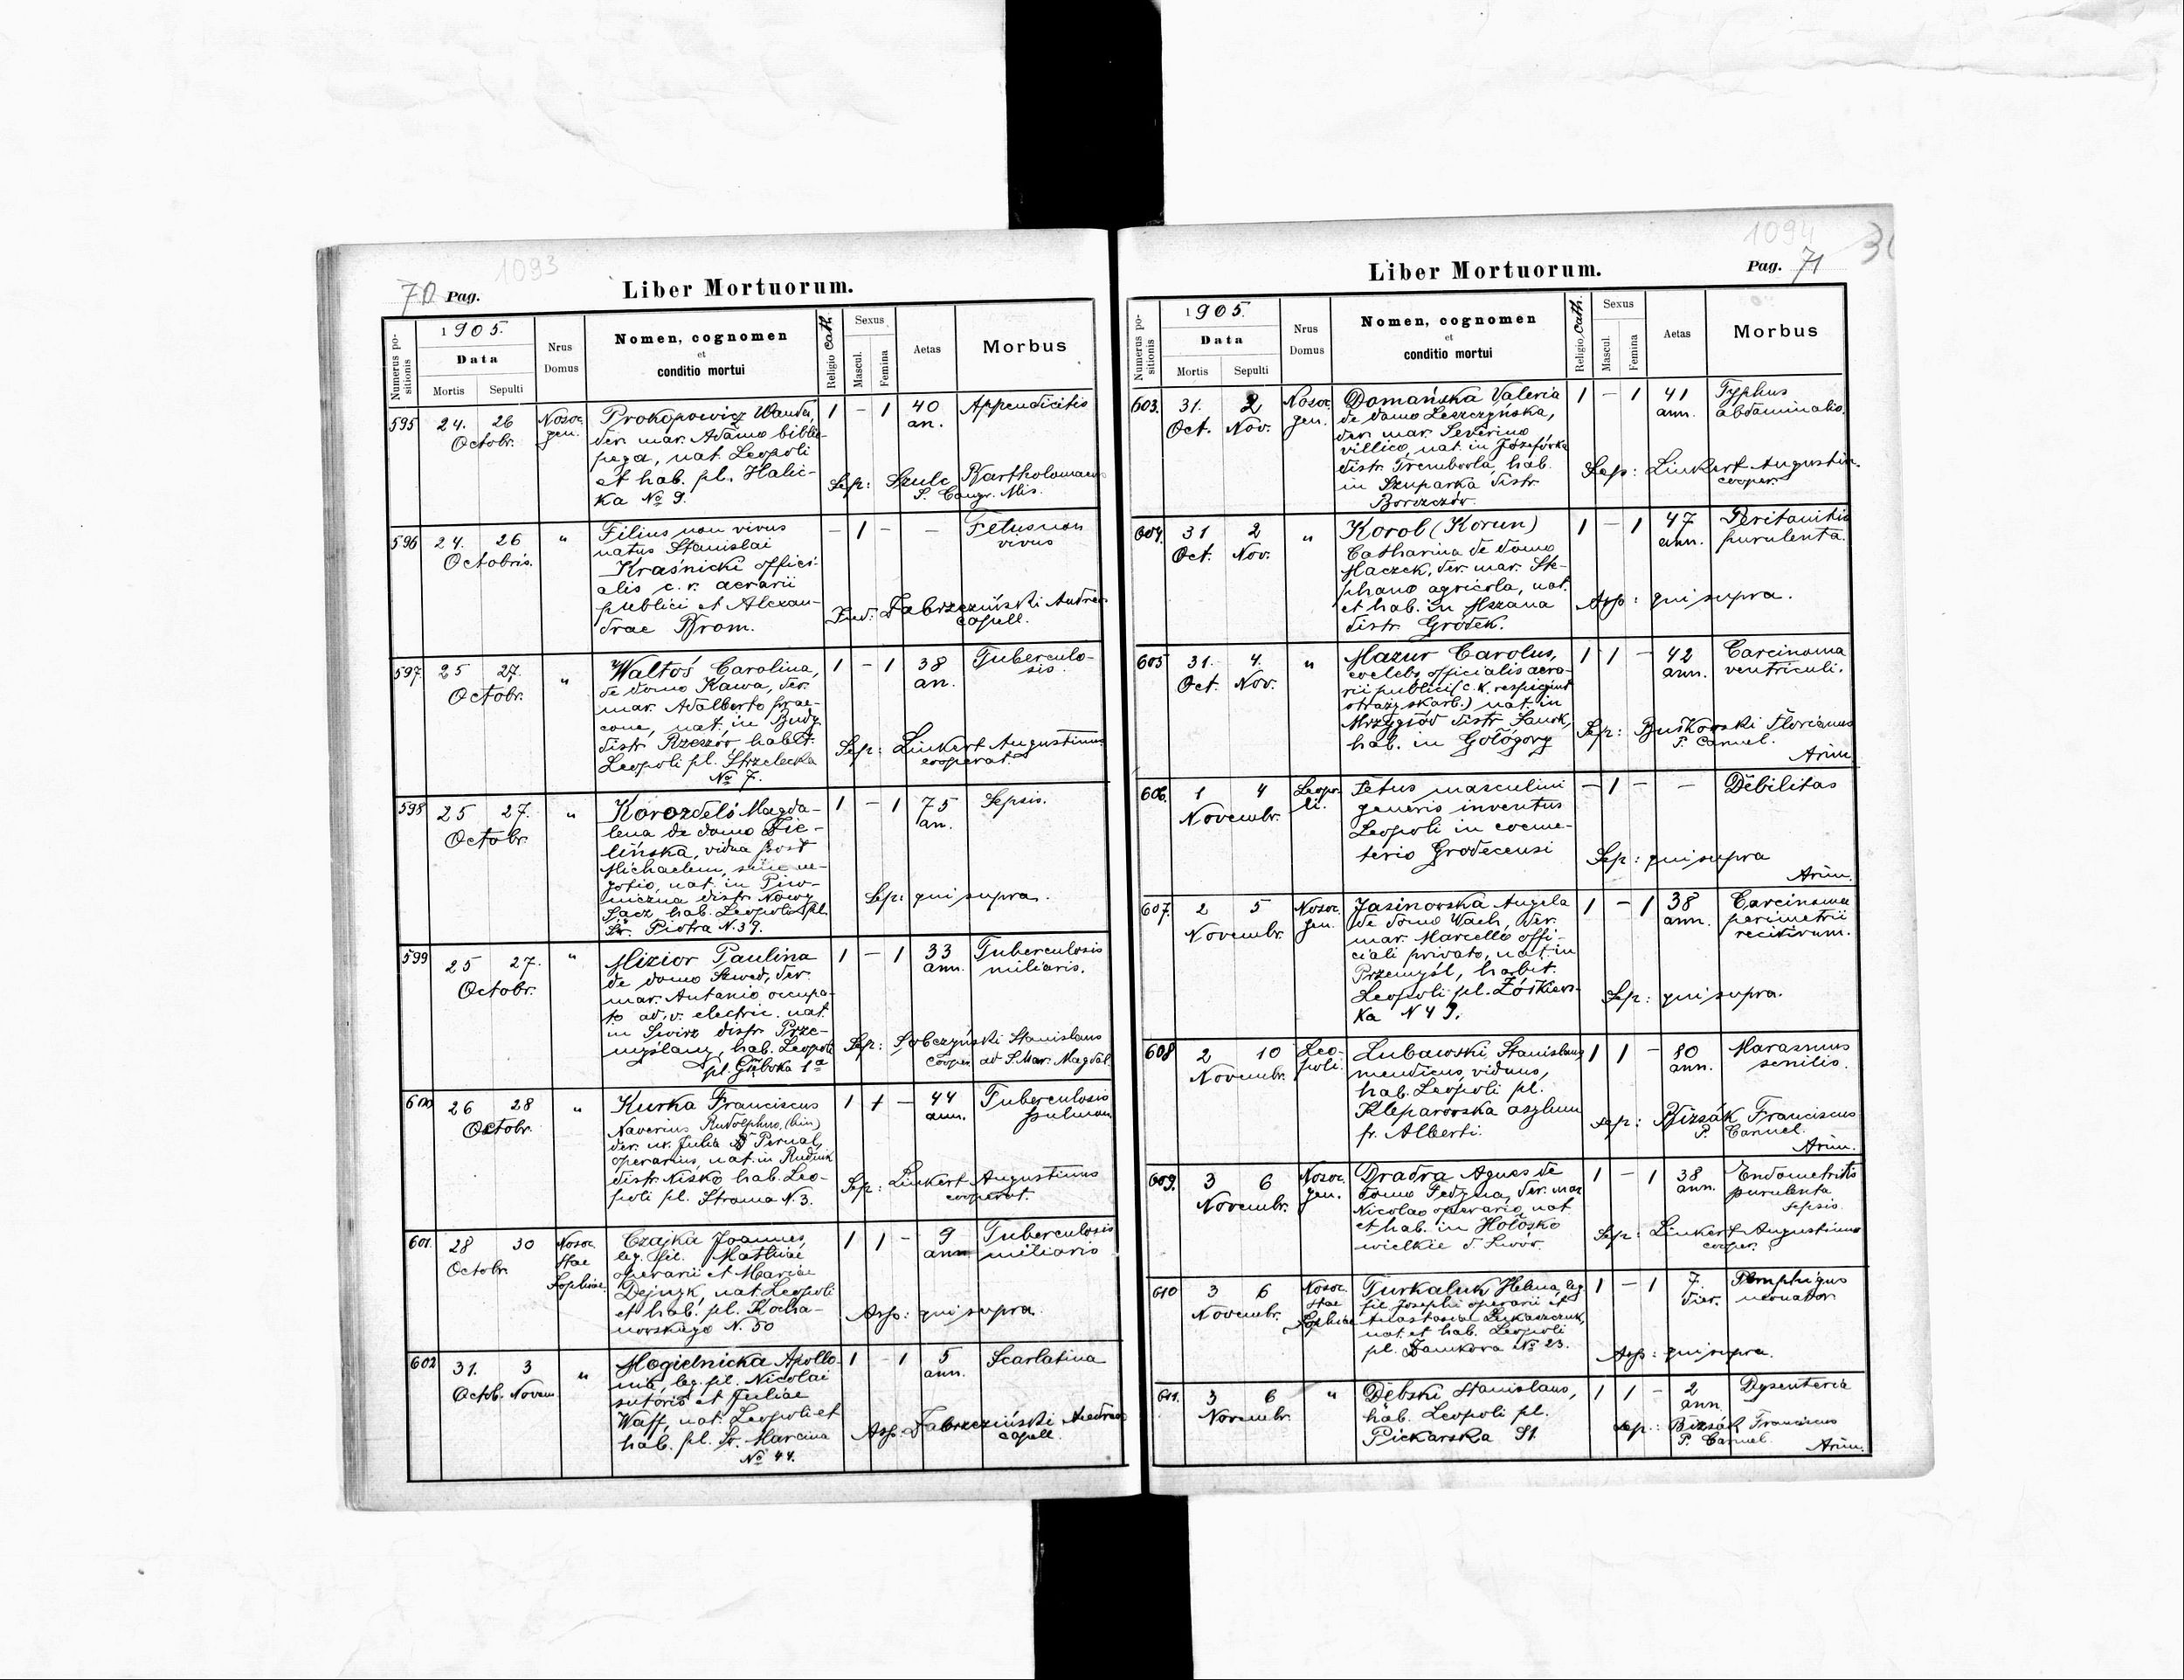 1093
70 Pag.
Liber Mortuorum.
Numerus positionis
1905.
Data
Mortis
Sepulti
Nrus
Domus
Nomen, cognomen
et
conditio mortui
Religio cath.
Sexus
Mascul.
Femina
Aetas
Morbus
595 24. 26
Octobr.
Nosoc.
gen.
Prokopowicz Wanda,
der. mar. Adamo biblio-
pega, nat. Leopoli
et hab. pl. Halic-
ka No 9.
1 – 1 40
an.
Appendicitis
Sep: Szulc Bartholomaeus
S. Congr. Mis.
596 24. 26
Octobris.
"
Filius non vivus
natus Stanislai
Kraśnicki offici-
alis c. r. aerarii
publici et Alexan-
drae Brom.
– 1 – –
Fetus non
vivus
Ind: Zabrzeziński Andreas
capell.
597 25 27.
Octobr.
"
Waltoś Carolina,
de domo Kawa, der.
mar. Adalberto prae-
cone, nat. in Budy
distr. Rzeszów, habit.
Leopoli pl. Strzelecka
No 7.
1 – 1 38
an.
Tuberculo-
sis.
Sep: Linkert Augustinus
cooperat.
598 25 27.
Octobr.
"
Korozdeló Magda-
lena de domo Zie-
lińska, vidua post
Michaelem, sine ne-
gotio, nat. in Piw-
niczna distr. Nowy
Sącz hab. Leopoli pl.
Św. Piotra N. 39.
1 – 1 75
an.
Sepsis.
Sep: qui supra.
599 25 27.
Octobr.
"
Mizior Paulina
de domo Szwed, der.
mar. Antonio occupa-
to ad v. electric. nat.
in Świrz distr. Prze-
myślany, hab. Leopoli
pl. Gródecka 1a
1 – 1 33
ann.
Tuberculosis
miliaris.
Sep: Sobczyński Stanislaus
cooper. ad S. Mar. Magdal.
600 26 28
Octobr.
"
Kurka Franciscus
Xaverius Rudolphus (bin)
der. ux. Julia Pernal,
operarius, nat. in Rudnik
distr. Nisko hab. Leo-
poli pl. Stroma N. 3.
1 1 – 44
ann.
Tuberculosis
pulmon.
Sep: Linkert Augustinus
cooperat.
601. 28 30
Octobr.
Nosoc.
Stae
Sophiae
Czajka Joannes,
leg. fil. Mathiae
operarii et Mariae
Dejnyk, nat. Leopoli
et hab. pl. Kocha-
nowskiego N. 50
1 1 – 9
ann
Tuberculosis
miliaris
Asp: qui supra.
602 31. 3
Octob. Novem.
"
Mogielnicka Apollo-
nia, leg. fil. Nicolai
sutoris et Juliae
Waff, nat. Leopoli et
hab. pl. Św. Marcina
No 44.
1 – 1 5
ann.
Scarlatina
Asp: Zabrzeziński Andreas
capell.
1094
Liber Mortuorum.
Pag. 71
Numerus positionis
1905.
Data
Mortis
Sepulti
Nrus
Domus
Nomen, cognomen
et
conditio mortui
Religio, cath.
Sexus
Mascul.
Femina
Aetas
Morbus
603. 31. 2
Oct. Nov.
Nosoc.
gen.
Domańska Valeria
de domo Leszczyńska,
der. mar. Severino
villico, nat. in Józefówka
distr. Trembowla, hab.
in Szuparka distr.
Borszczów.
1 – 1 41
ann.
Typhus
abdominalis.
Sep: Linkert Augustin.
cooper.
604. 31 2
Oct. Nov.
"
Korol (Korun)
Catharina de domo
Maczek, der. mar. Ste-
phano agricola, nat.
et hab. in Mszana
distr. Gródek.
1 – 1 47
ann.
Peritonitis
purulenta.
Asp: qui supra.
605 31. 4.
Oct. Nov.
"
Mazur Carolus,
coelebs officialis aera-
rii publici (c. k. respicient
straży skarb.) nat. in
Mrzygłód distr. Sanok,
hab. in Gołogóry
1 1 – 42
ann.
Carcinoma
ventriculi.
Sep: Buśkowski Florianus
P. Carmel.
Arim.
606. 1 4
Novembr.
Leopo-
li.
Fetus masculini
generis inventus
Leopoli in coeme-
terio Grodecensi
– 1 – –
Debilitas
Sep: qui supra
Arim.
607. 2 5
Novembr.
Nosoc.
gen.
Jasinowska Angela
de domo Wach, der.
mar. Marcello offi-
ciali privato, nat. in
Przemyśl, habit.
Leopoli pl. Żółkiews-
ka N 49.
1 – 1 38
ann.
Carcinoma
parimetrii
recidivum.
Sep: qui supra.
608 2 10
Novembr.
Leo-
poli.
Lubawski Stanislaus
mendicus, viduus,
hab. Leopoli pl.
Kleparowska asylum
fr. Alberti.
1 1 – 80
ann.
Marasmus
senilis.
Sep: Bizsák Franciscus
P. Carmel.
Arim.
609. 3 6
Novembr.
Nosoc.
gen.
Dradra Agnes de
domo Fedyna, der. mar
Nicolao operario, nat.
et hab. in Hołosko
wielkie d. Lwów.
1 – 1 38
ann.
Endometritis
purulenta
Sepsis.
Sep: Linkert Augustinus
cooper.
610 3 6
Novembr.
Nosoc.
Stae
Sophiae
Turkaluk Helena, leg.
fil. Josephi operarii et
Anastasiae Łukaszczuk,
nat. et hab. Leopoli
pl. Zamkowa No 23.
1 – 1 7.
dier.
Pemphigus
neonator
Asp: qui supra.
611. 3 6
Novembr.
"
Dębski Stanislaus,
hab. Leopoli pl.
Piekarska 81.
1 1 – 2
ann.
Dysenteria
Sep: Bizsák Franciscus
P. Carmel.
Arim.